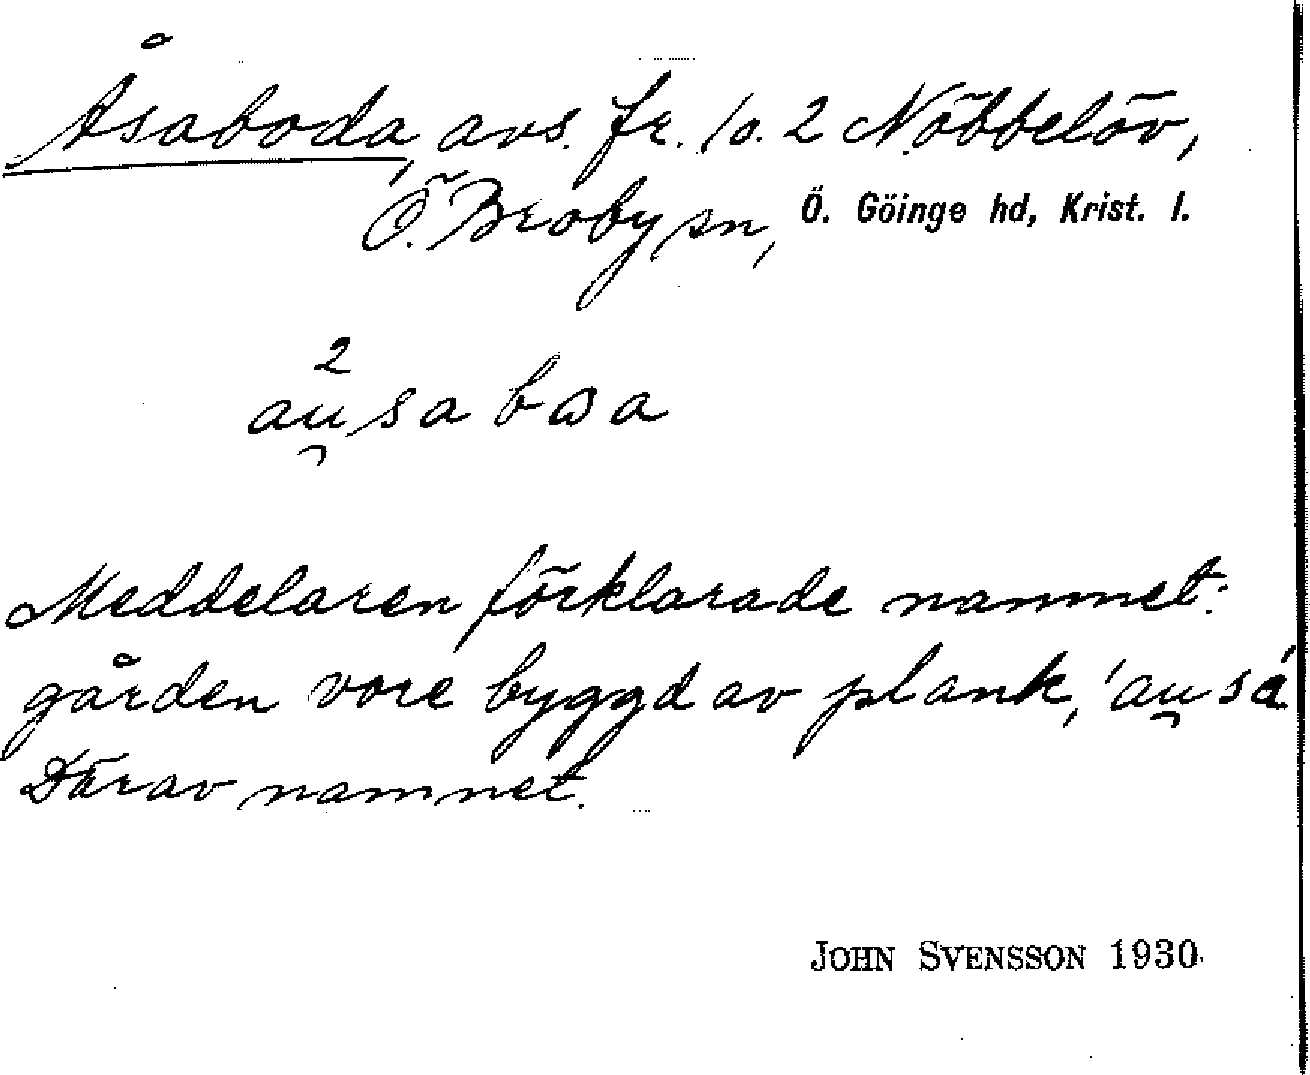 Åsaboda, avs. fr. 1 o. 2 Nöbbelöv,
Ö. Broby sn, Ö. Göinge hd, Krist. l.
2
au̯sa bωa
Meddelaren förklarade namnet:
gården vore byggd av plank, 'au̯sá
Därav namnet.
JOHN SVENSSON 1930